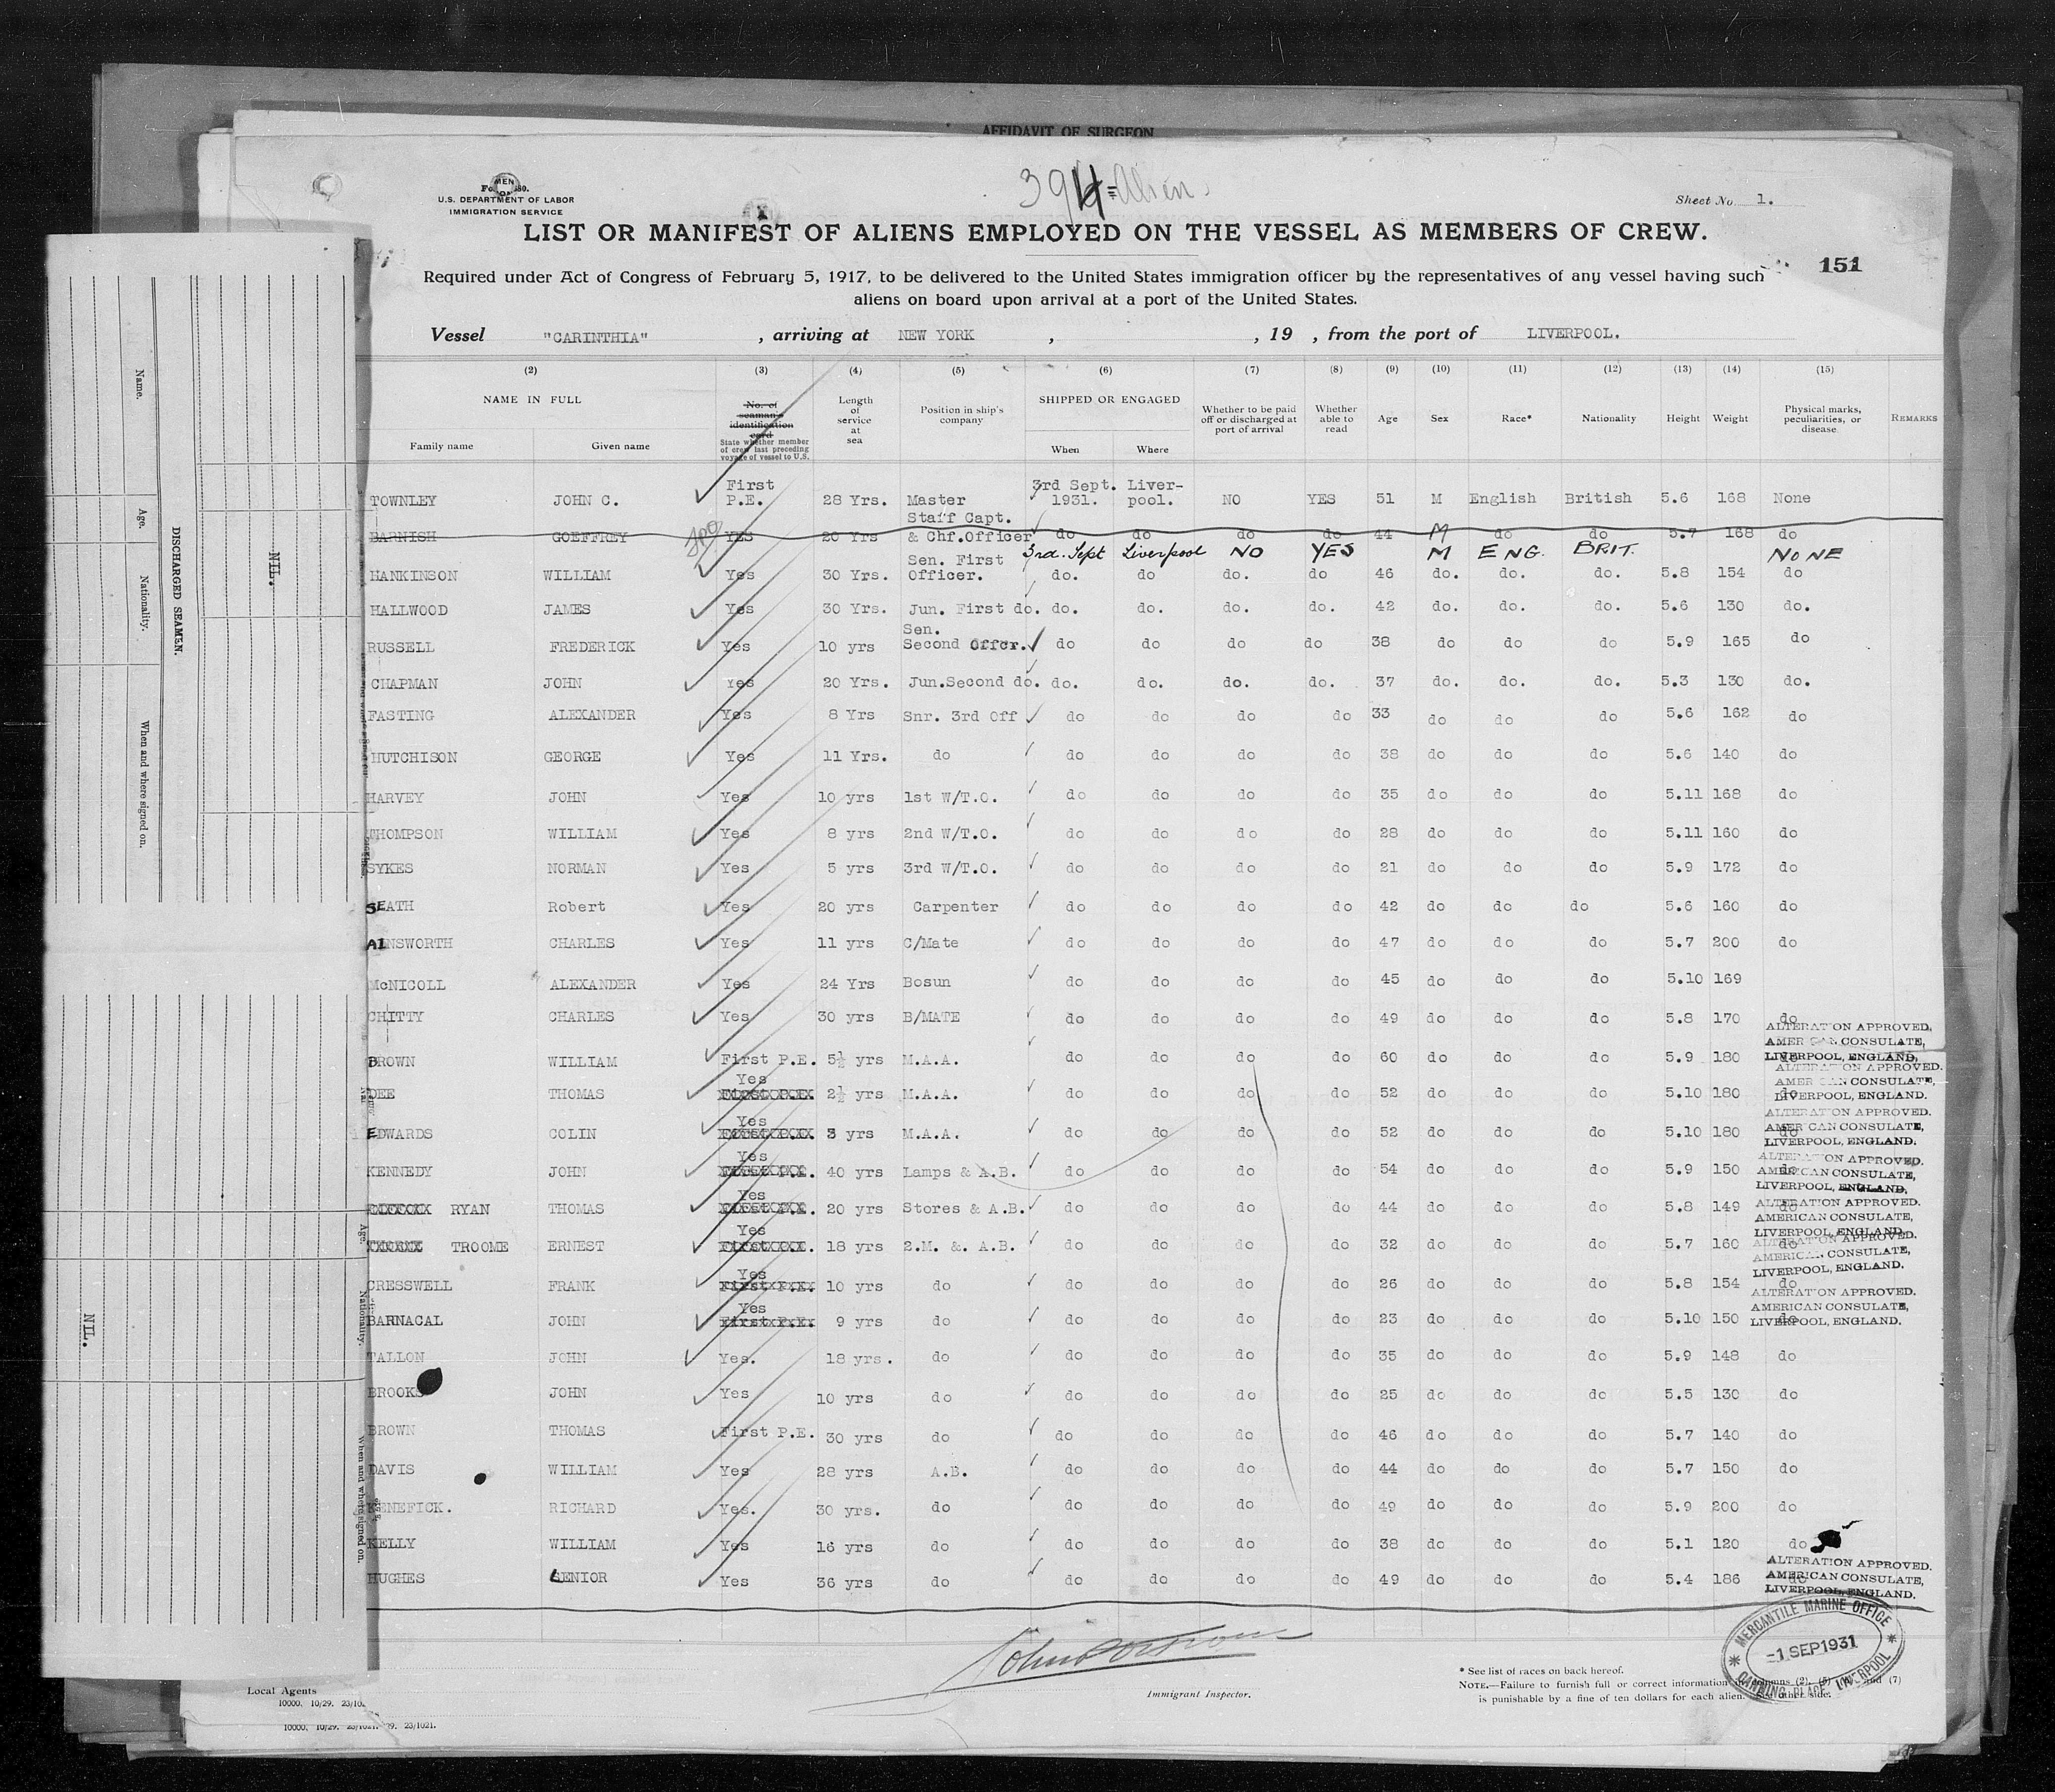 AFFIDAVIT OF SURGEON
39 Alien
U.S. DEPARTMENT OF LABOR
IMMIGRATION SERVICE
Sheet No 1.
LIST OR MANIFEST OF ALIENS EMPLOYED ON THE VESSEL AS MEMBERS OF CREW.
151
Required under Act of Congress of February 5, 1917, to be delivered to the United States immigration officer by the representatives of any vessel having such
aliens on board upon arrival at a port of the United States.
Vessel "CARINTHIA" , arriving at NEW YORK , , 19 , from the port of LIVERPOOL.
(2) (3) (4) (5) (6) (7) (8) (9) (10) (11) (12) (13) (14) (15)
NAME IN FULL
Family name Given name
No. of seaman's identification card
State whether member of crew last preceding voyage of vessel to U.S.
Length of service at sea
Position in ship's company
SHIPPED OR ENGAGED
When Where
Whether to be paid off or discharged at port of arrival
Whether able to read
Age Sex Race* Nationality Height Weight
Physical marks, peculiarities, or disease
REMARKS
TOWNLEY JOHN C. First P.E. 28 Yrs. Master 3rd Sept. 1931. Liver-pool. NO YES 51 M English British 5.6 168 None
BARNISH GOEFFREY YES 20 Yrs Staff Capt. & Chf.Officer do do do do 44 M do do 5.7 168 do
3rd. Sept Liverpool NO YES M ENG. BRIT. NONE
HANKINSON WILLIAM Yes 30 Yrs. Sen. First Officer. do. do do. do 46 do. do. do. 5.8 154 do
HALLWOOD JAMES Yes 30 Yrs. Jun. First do. do. do. do. do. 42 do. do. do. 5.6 130 do.
RUSSELL FREDERICK Yes 10 yrs Sen. Second Offcr. do do do do 38 do do do 5.9 165 do
CHAPMAN JOHN Yes 20 Yrs. Jun.Second do. do. do. do. do. 37 do. do. do. 5.3 130 do.
FASTING ALEXANDER Yes 8 Yrs Snr. 3rd Off do do do do 33 do do do 5.6 162 do
HUTCHISON GEORGE Yes 11 Yrs. do do do do do 38 do do do 5.6 140 do
HARVEY JOHN Yes 10 yrs 1st W/T.O. do do do do 35 do do do 5.11 168 do
THOMPSON WILLIAM Yes 8 yrs 2nd W/T.O. do do do do 28 do do do 5.11 160 do
SYKES NORMAN Yes 5 yrs 3rd W/T.O. do do do do 21 do do do 5.9 172 do
SEATH Robert Yes 20 yrs Carpenter do do do do 42 do do do 5.6 160 do
AINSWORTH CHARLES Yes 11 yrs C/Mate do do do do 47 do do do 5.7 200 do
McNICOLL ALEXANDER Yes 24 Yrs Bosun do do do do 45 do do do 5.10 169
CHITTY CHARLES Yes 30 yrs B/MATE do do do do 49 do do do 5.8 170 do
BROWN WILLIAM First P.E. 5½ yrs M.A.A. do do do do 60 do do do 5.9 180 do
ALTERATION APPROVED, AMERICAN CONSULATE, LIVERPOOL, ENGLAND,
DEE THOMAS Yes 2½ yrs M.A.A. do do do do 52 do do do 5.10 180 do
ALTERATION APPROVED. AMERICAN CONSULATE, LIVERPOOL, ENGLAND.
EDWARDS COLIN Yes 3 yrs M.A.A. do do do do 52 do do do 5.10 180 do
ALTERATION APPROVED. AMERICAN CONSULATE, LIVERPOOL, ENGLAND.
KENNEDY JOHN Yes 40 yrs Lamps & A.B. do do do do 54 do do do 5.9 150 do
ALTERATION APPROVED. AMERICAN CONSULATE, LIVERPOOL, ENGLAND.
RYAN THOMAS Yes 20 yrs Stores & A.B. do do do do 44 do do do 5.8 149 do
ALTERATION APPROVED. AMERICAN CONSULATE, LIVERPOOL, ENGLAND.
TROOME ERNEST Yes 18 yrs 2.M. &. A.B. do do do do 32 do do do 5.7 160 do
ALTERATION APPROVED. AMERICAN CONSULATE, LIVERPOOL, ENGLAND.
CRESSWELL FRANK Yes 10 yrs do do do do do 26 do do do 5.8 154 do
BARNACAL JOHN Yes 9 yrs do do do do do 23 do do do 5.10 150 do
ALTERATION APPROVED. AMERICAN CONSULATE, LIVERPOOL, ENGLAND.
TALLON JOHN Yes. 18 yrs. do do do do do 35 do do do 5.9 148 do
BROOKS JOHN Yes 10 yrs do do do do do 25 do do do 5.5 130 do
BROWN THOMAS First P.E. 30 yrs do do do do do 46 do do do 5.7 140 do
DAVIS WILLIAM Yes 28 yrs A.B. do do do do 44 do do do 5.7 150 do
KENEFICK. RICHARD Yes. 30 yrs. do do do do do 49 do do do 5.9 200 do
KELLY WILLIAM Yes 16 yrs do do do do do 38 do do do 5.1 120 do
HUGHES SENIOR Yes 36 yrs do do do do do 49 do do do 5.4 186 do
ALTERATION APPROVED. AMERICAN CONSULATE, LIVERPOOL, ENGLAND.
MERCANTILE MARINE OFFICE
-1 SEP 1931
CANNING PLACE LIVERPOOL
Immigrant Inspector.
* See list of races on back hereof.
NOTE.—Failure to furnish full or correct information in columns (2), (5) and (7)
is punishable by a fine of ten dollars for each alien. See other side.
Local Agents
10000. 10/29. 23/102
23/1021.
DISCHARGED SEAMEN.
Name. Age. Nationality. When and where signed on.
NIL.
Age. Nationality. When and where signed on.
NIL.